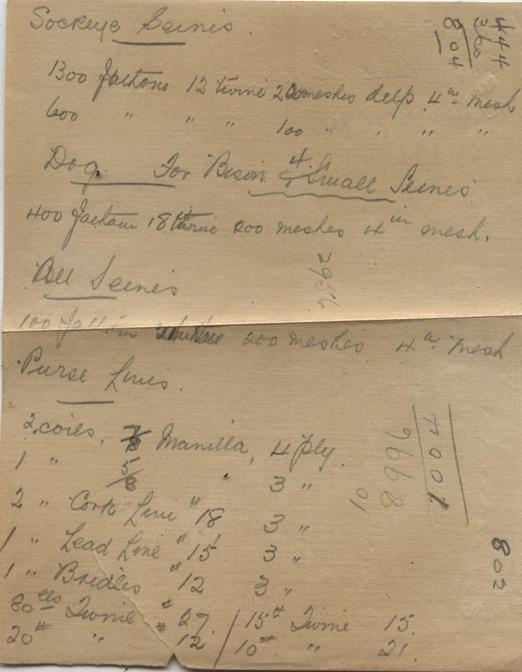 Sockeye Seines.
1300 fathoms 12 twine 200 meshes deep 4" mesh
600 " " " 100 " " " "
Dog For Bison & 4 Small Seines
400 fathom 18 twine 200 meshes 4" mesh.
All Seines
100 fathom 200 meshes 4" mesh
Purse Lines.
2 coils, 7/8 Manilla, 4 ply.
1 " 5/8 3 "
2 " Cork Line "18 3 "
1 " Lead Line "15 3 "
1 " Bridles "12 3 "
80 lbs Twine # 27. / 15# Twine 15.
20# " # 12 / 10# " 21.
444
360
804
2956
8996
10
1004
802